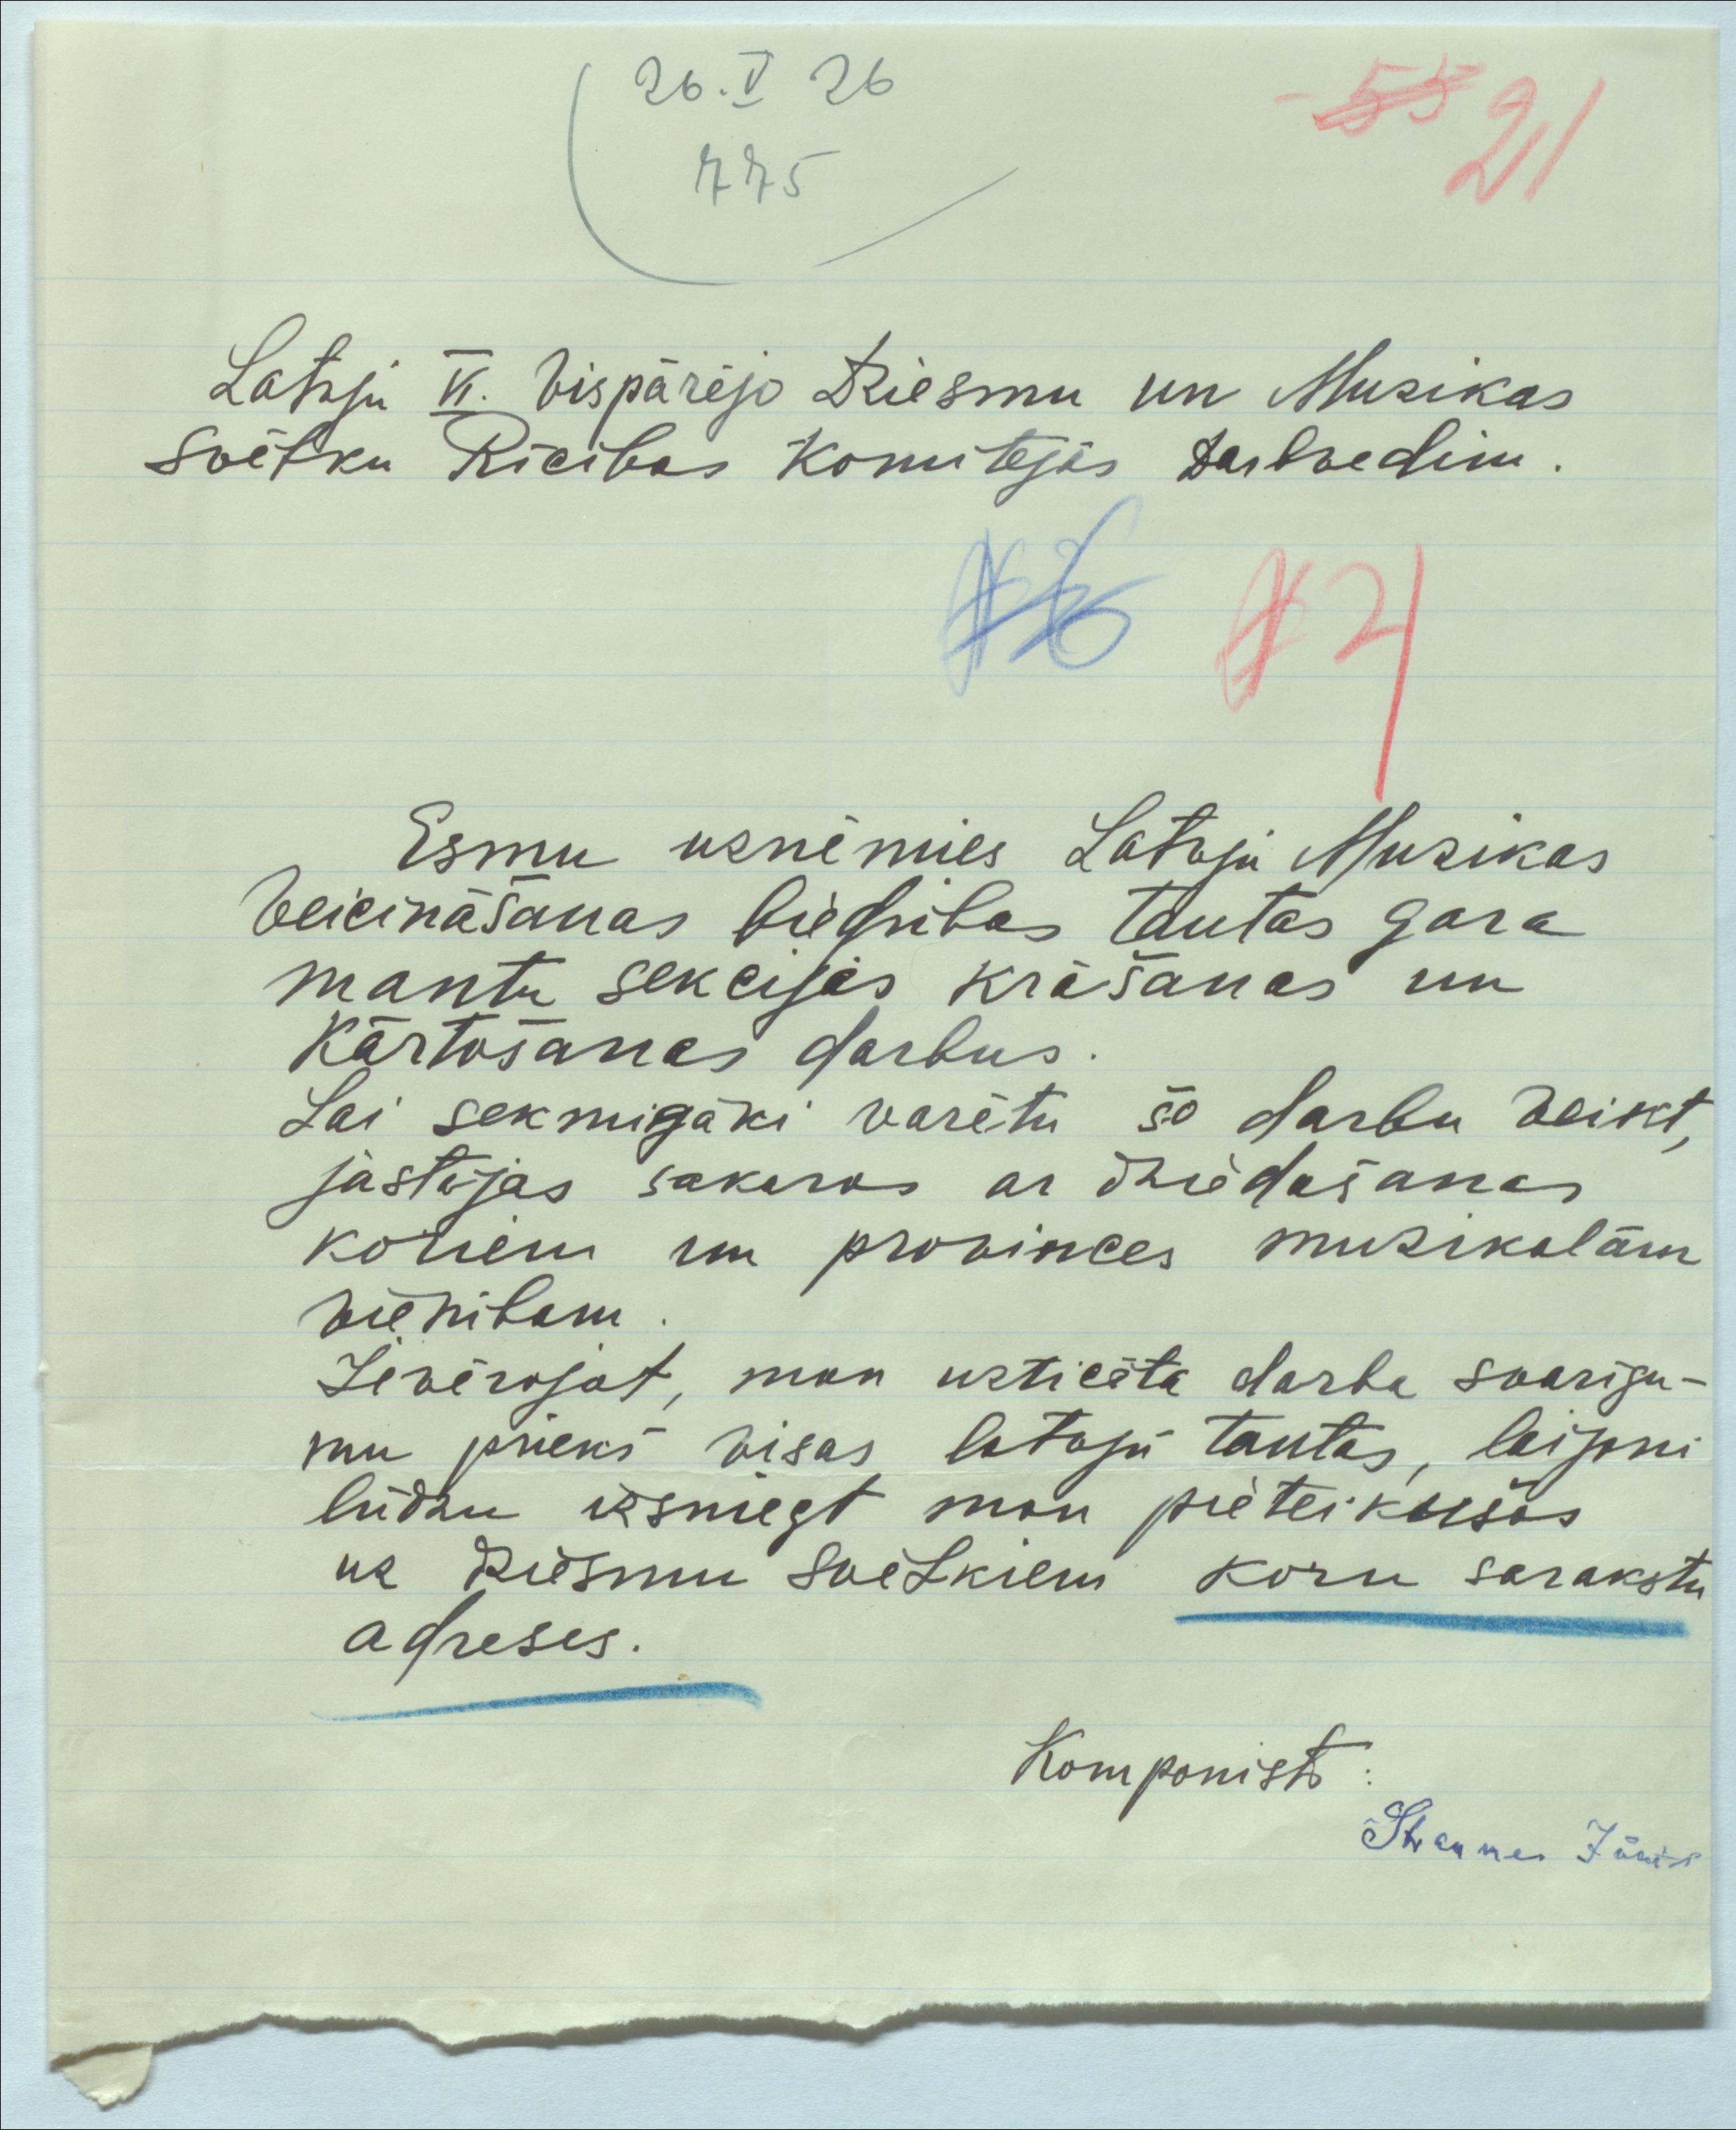 26. V 26
775
55 21
Latvju VI. Vispārējo Dziesmu un Muzikas
svētku Rīcibas Komitejas Darbvedim.
Esmu uzņēmies Latvju Muzikas
Veicināšanas biedribas tautas gara
mantu sekcijas krāšanas un
Kārtošanas darbus.
Lai sekmigāki varētu šo darbu veikt,
jāstājas sakaros ar dziedašanas
koriem un provinces muzikalām
vienibam.
Ievērojot, man uzticēta darba svarigu-
mu priekš visas latvju tautas, laipni
lūdzu izsniegt man pieteikušos
uz Dziesmu svētkiem koru sarakstu
adreses.
Komponists:
Straumes Jānis